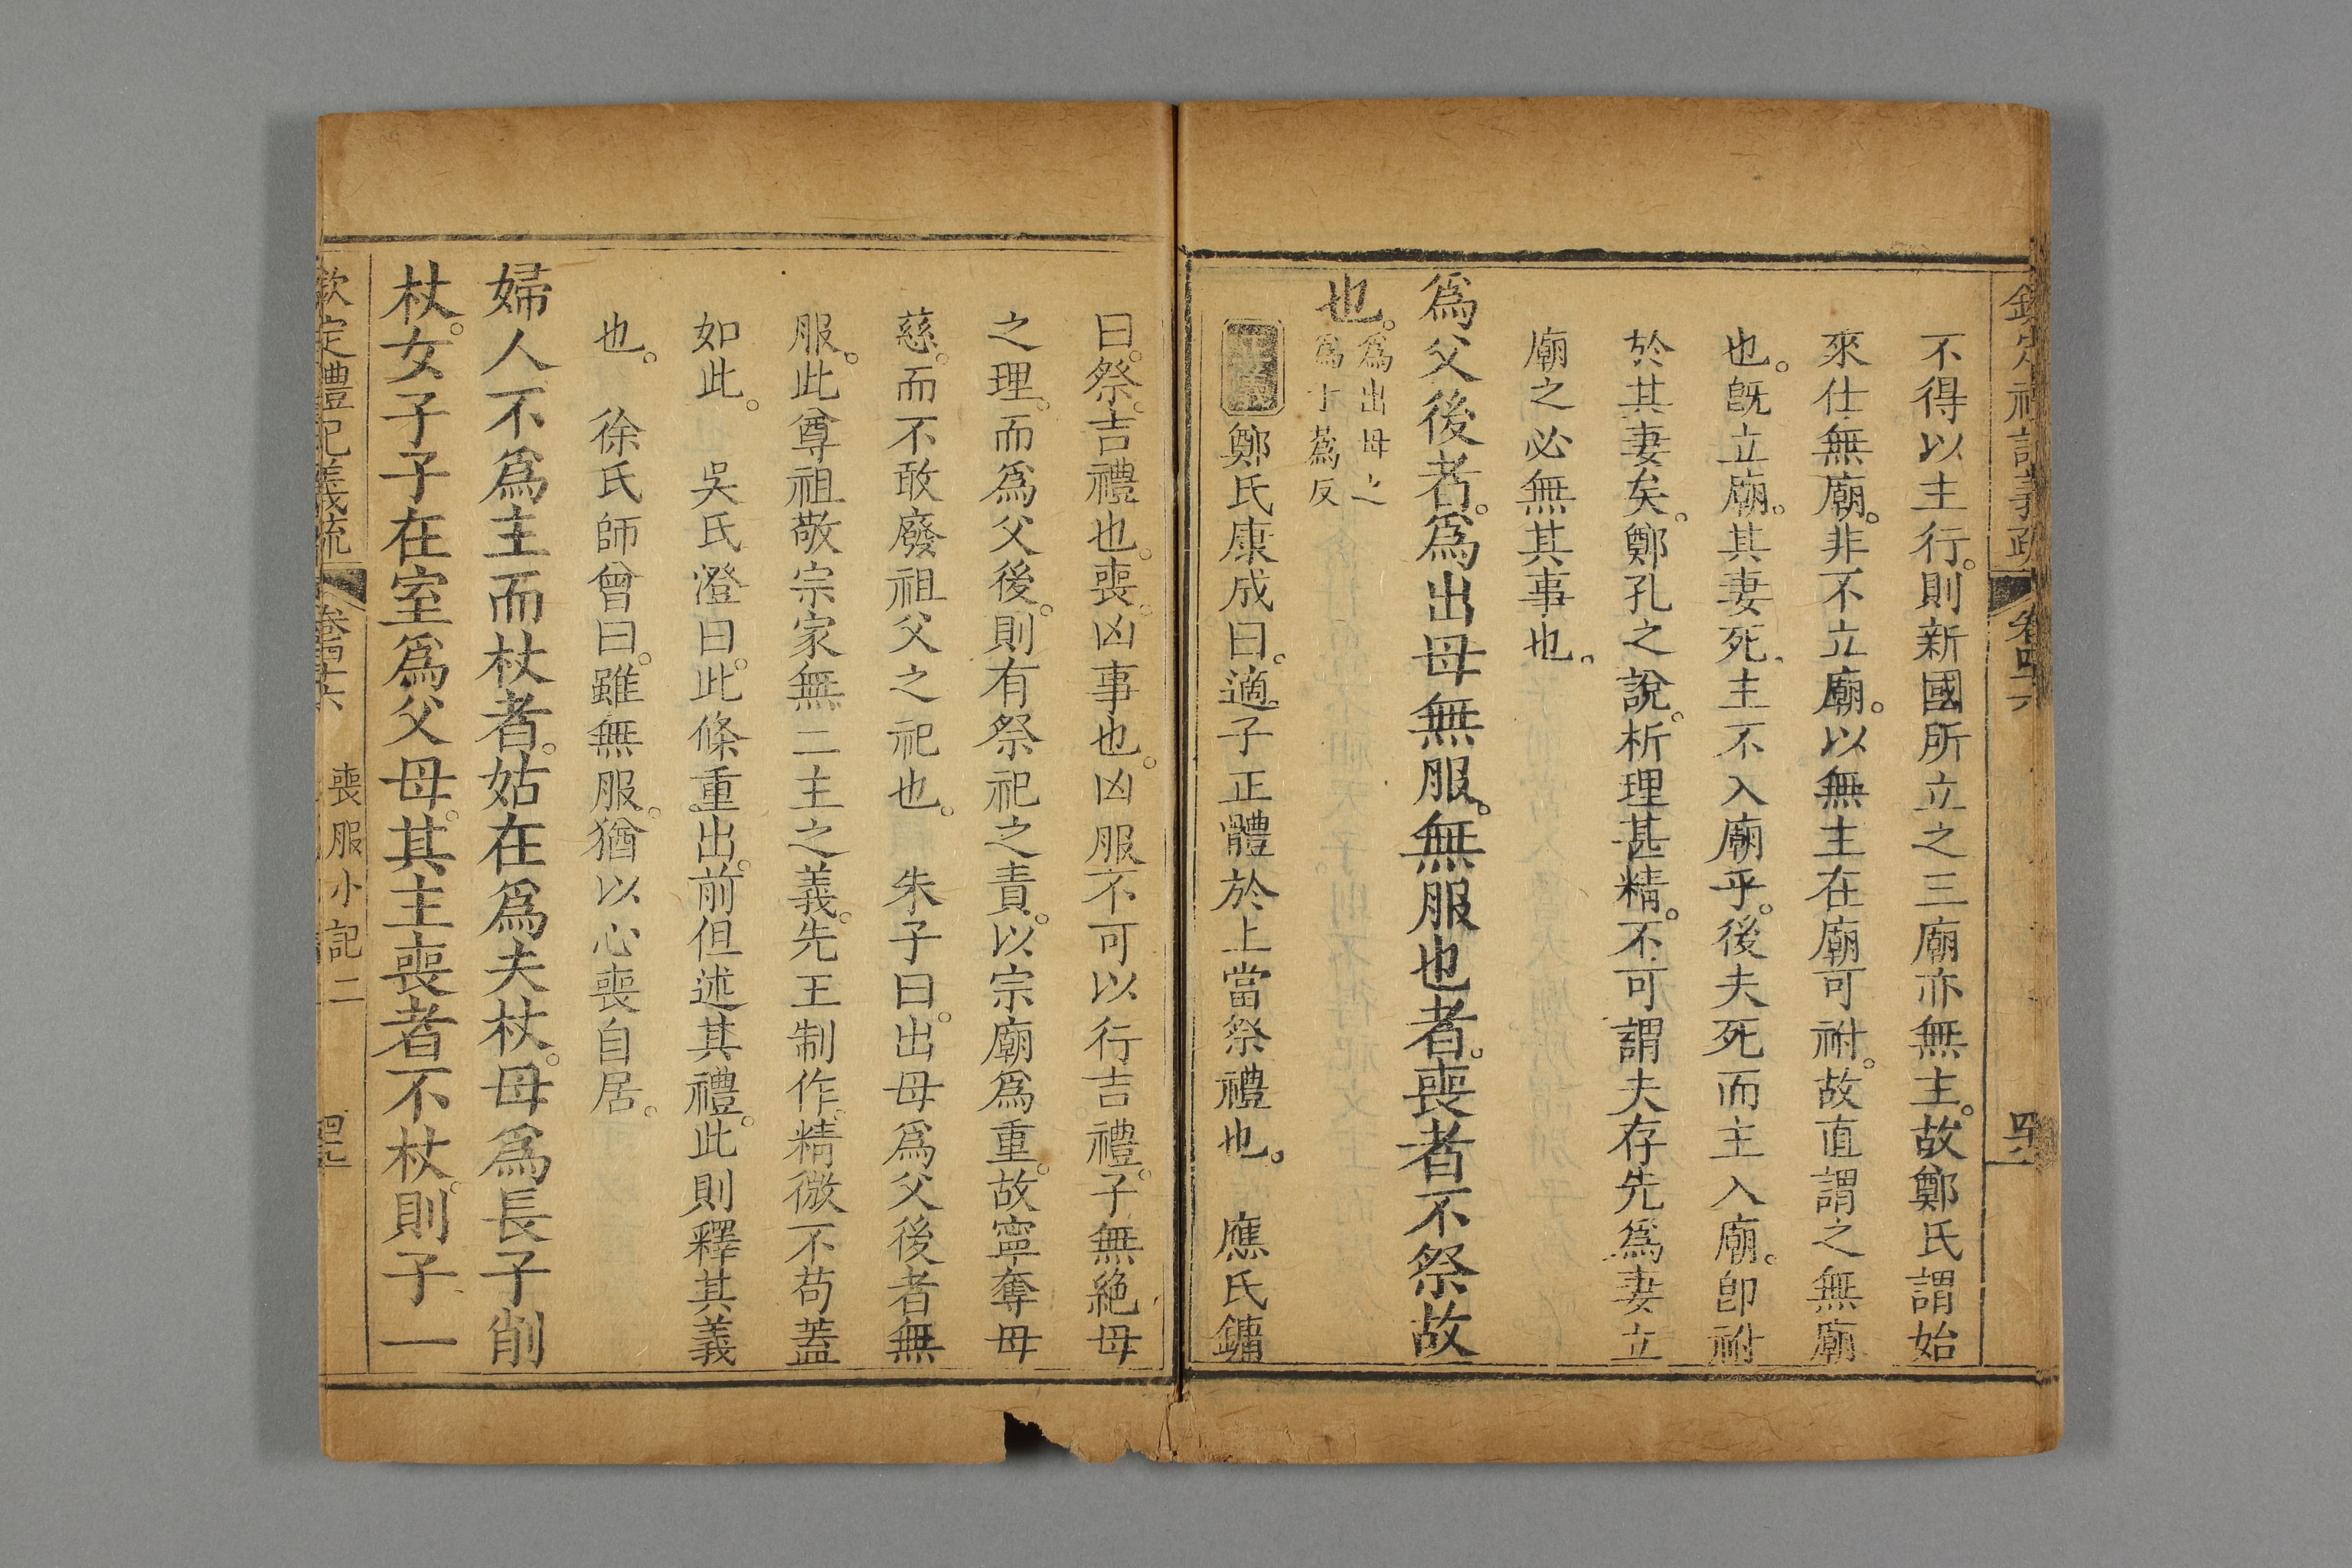 欽定禮記義疏 卷四十六
不得以主行。則新國所立之三廟亦無主。故鄭氏謂始
來仕無廟。非不立廟。以無主在廟可祔。故直謂之無廟
也。旣立廟。其妻死。主不入廟乎。後夫死而主入廟。卽祔
於其妻矣。鄭孔之說。析理甚精。不可謂夫存先為妻立
廟之必無其事也。
爲父後者。爲出母無服。無服也者。喪者不祭故
也。
爲出母之
爲于爲反
鄭氏康成曰。適子正體於上當祭禮也。 應氏鏞
曰。祭。吉禮也。喪。凶事也。凶服不可以行吉禮。子無絶母
之理。而爲父後。則有祭祀之責。以宗廟爲重。故寧奪母
慈。而不敢廢祖父之祀也。 朱子曰。出母爲父後者無
服。此尊祖敬宗家無二主之義。先王制作。精微不苟蓋
如此。 吳氏澄曰。此條重出。前但述其禮。此則釋其義
也。 徐氏師曾曰。雖無服。猶以心喪自居。
婦人不爲主而杖者。姑在爲夫杖。母爲長子削
杖。女子子在室爲父母。其主喪者不杖。則子一
欽定禮記義疏 卷四十六 喪服小記二